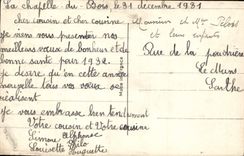 La chapelle du Bois le 31 décembre 1931
cher cousin et cher cousine
je viens vous presenter nos
meilleurs voeux de bonheur et de
bonne santé pour 1932.
je desire qu'en cette année
nouvelle tous vos voeux se
réalisent
je vous embrasse bien
Votre cousin et Votre cousine
Simone Alphonse
Louisette
Huguette
Monsieur et Mme
et leur enfants
Rue de la poudrière
Le Mans
Sarthe